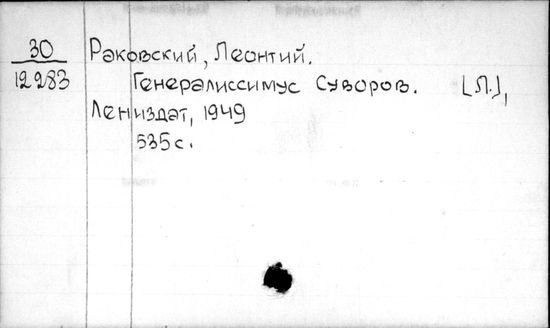 30
12283
Раковский, Леонтий.
Генералиссимус Суворов. [Л.],
Лениздат, 1949
535 с.